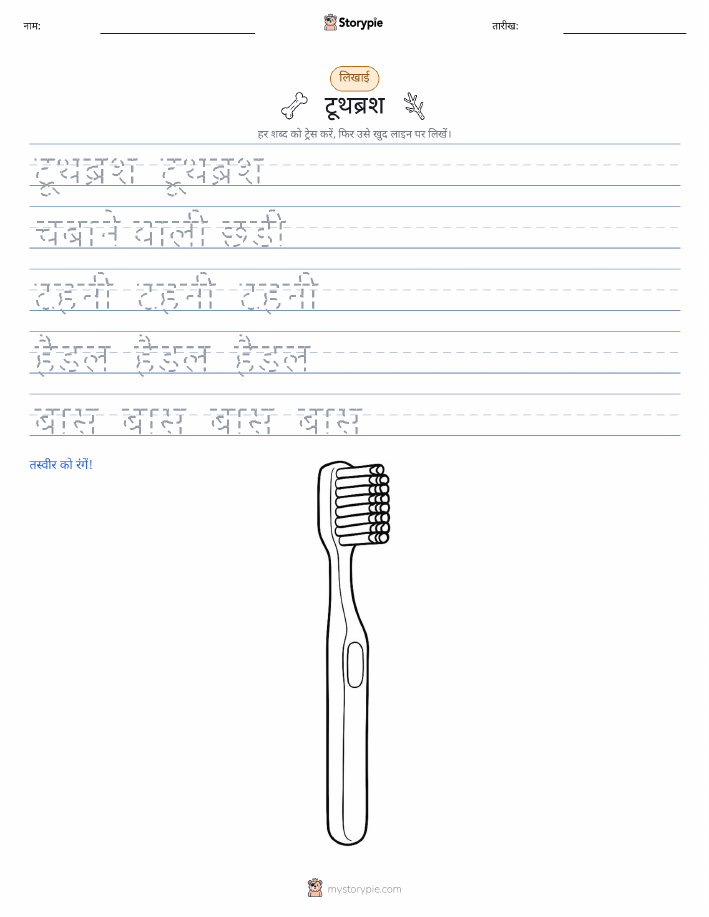 नाम:
Storypie
तारीख:
लिखाई
टूथब्रश
हर शब्द को ट्रेस करें, फिर उसे खुद लाइन पर लिखें।
टूथब्रश टूथब्रश
चबाने वाली छड़ी
टहनी टहनी टहनी
हैंडल हैंडल हैंडल
बांस बांस बांस बांस
तस्वीर को रंगें!
mystorypie.com